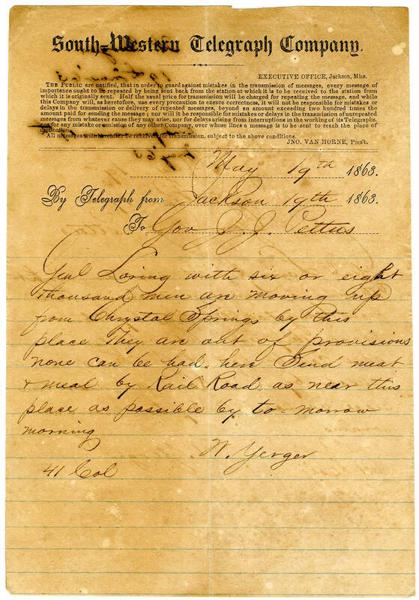 South-Western Telegraph Company.
EXECUTIVE OFFICE, Jackson, Miss.
THE PUBLIC are notified, that in order to guard against mistakes in the transmission of messages, every message of
importance ought to be repeated by being sent back from the station at which it is to be received to the station from
which it is originally sent. Half the usual price for transmission will be charged for repeating the message, and while
this Company will, as heretofore, use every precaution to ensure correctness, it will not be responsible for mistakes or
delays in the transmission or delivery of repeated messages, beyond an amount exceeding two hundred times the
amount paid for sending the message; nor will it be responsible for mistakes or delays in the transmission of unrepeated
messages from whatever cause they may arise, nor for delays arising from interruptions in the working of its Telegraphs,
nor for any mistake or omission of any other Company, over whose lines a message is to be sent to reach the place of
All messages will be received for transmission, subject to the above conditions.
JNO. VAN HORNE, Pres't.
May 19th 1863.
By Telegraph from Jackson 19th 1863.
To Gov J. J. Pettus
Genl Loring with six or eight
thousand men are moving up
from Chrystal Springs by this
place They are out of provisions
none can be had here Send meat
& meal by Rail Road as near this
place as possible by to morrow
morning
W. Yerger
41 Col